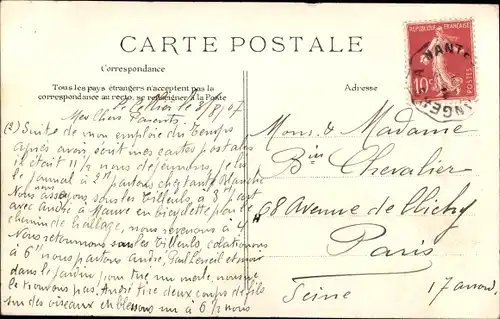 CARTE POSTALE
Correspondance
Tous les pays étrangers n'acceptent pas la
correspondance au recto, se renseigner à la Poste
Adresse
RÉPUBLIQUE FRANÇAISE
10c
POSTES
NANTE
ANGE
le 3/8/07
Mes Chers Parents
(2) Suite de mon emploie du temps
après avoir sont mes cartes postales
il était 11 1/2 nous déjeunons, je lis
le journal à 2h partons chez tante Blanche
Nous asseyons sous les tilleuls à 3h pars
avec André à Mauve en bicyclette par le
chemin de hallage, nous revenons à 4
Nous retournons sous les tilleuls, colationons
à 6h nous partons André, Paul et moi
dans le jardin pour tiré un merle, nous ne
le trouvons pas. André tire deux coups de fusil
sur des oiseaux en blessons un à 6 1/2 nous
Mons. & Madame
Chevalier
68 Avenue de Clichy
Paris
Seine 17 arrond.